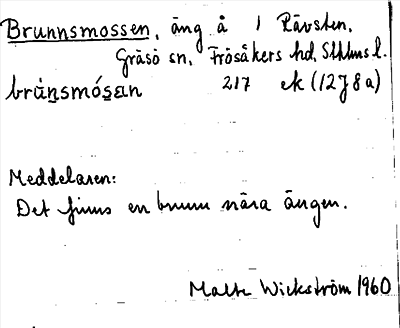 Brunnsmossen, äng å 1 Rävsten,
Gräsö sn, Frösåkers hd, Sthlms l.
brúnsmósan 217 ek (12J8a)
Meddelaren:
Det finns en brunn nära ängen.
Malte Wickström 1960